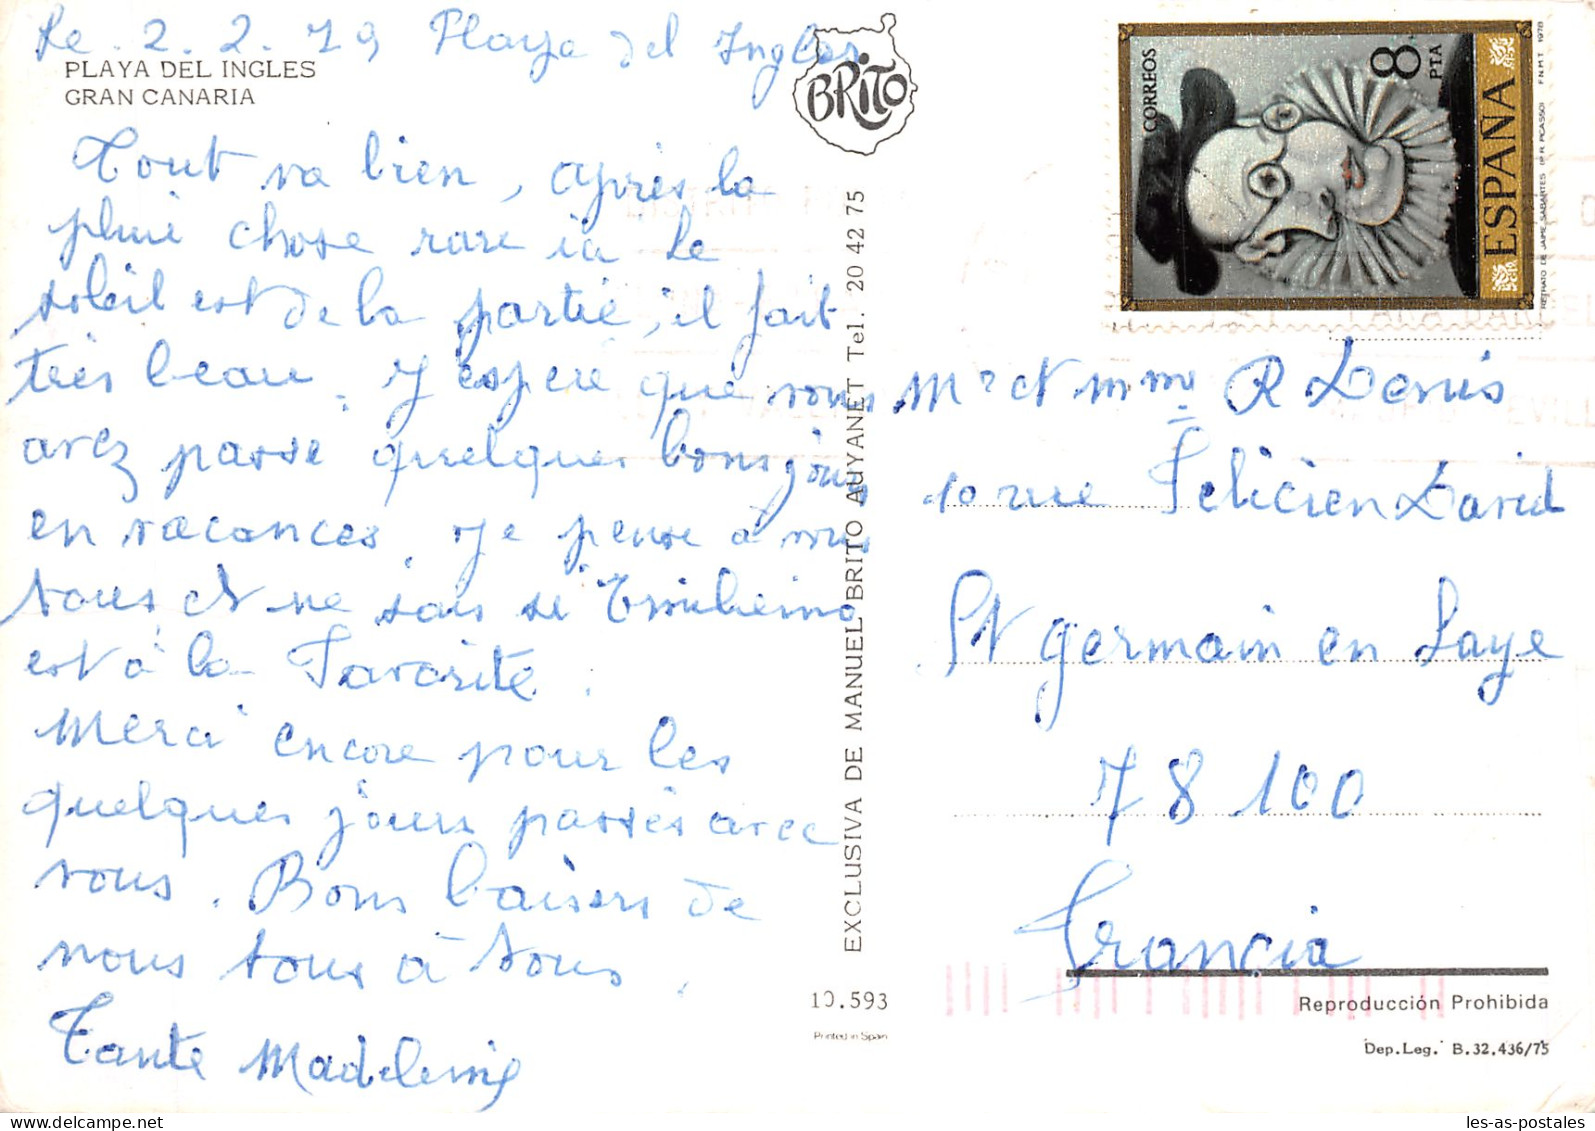 Le 2.2.79 Playa del Ingles
PLAYA DEL INGLES
GRAN CANARIA
BRITO
Tout va bien, après la
pluie chose rare ici le
soleil est de la partie, il fait
très beau. J'espère que vous
avez passé quelques bons jours
en vacances. Je pense à vous
tous et ne sais si
est à la Favorite.
Merci encore pour les
quelques jours passés avec
vous. Bons baisers de
nous tous à tous.
Tante Madeleine
EXCLUSIVA DE MANUEL BRITO AUYANET Tel. 20 42 75
10.593
Printed in Spain
CORREOS
8 PTA
ESPAÑA
RETRATO DE JAIME SABARTES (P. R. PICASSO) F.N.M.T. 1978
Mr et Mme R Denis
10 rue Felicien David
St Germain en Laye
78100
Francia
Reproducción Prohibida
Dep. Leg. B. 32.436/75
les-as-postales